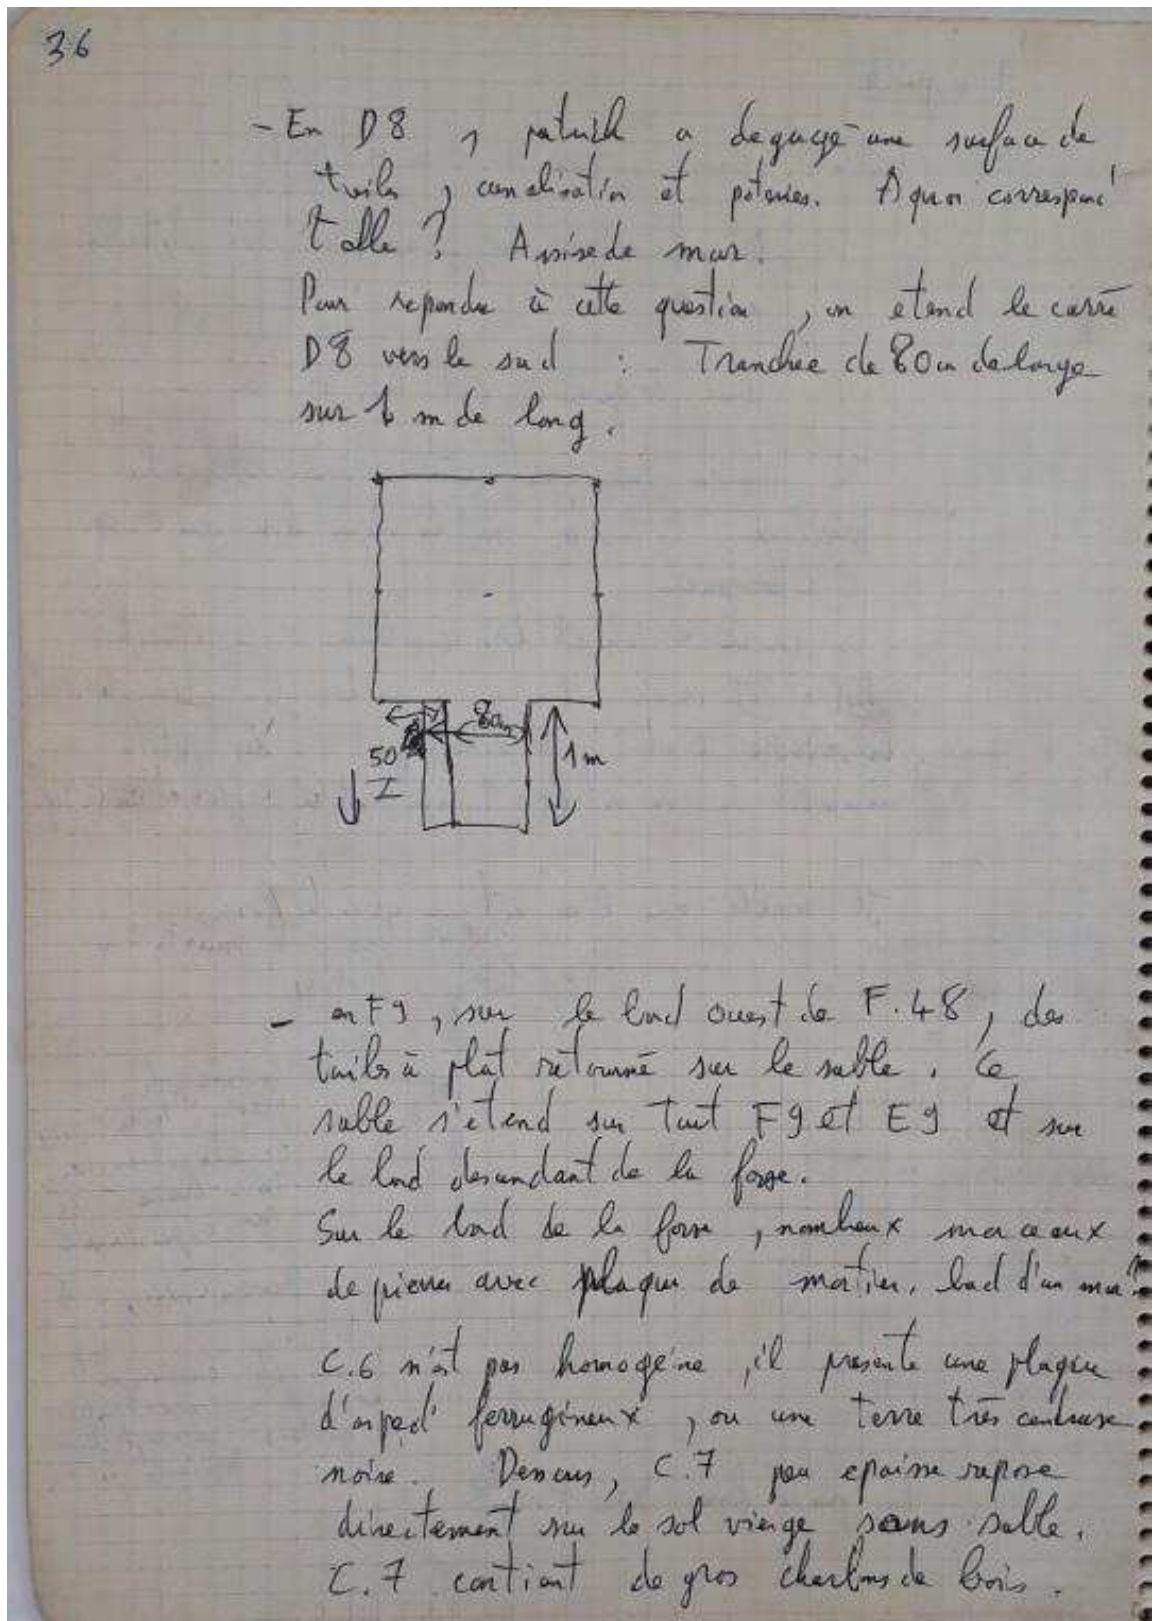 36
- En D8, patrick a degagé une surface de
tuiles, canalisation et poteries. A quoi correspond
t'elle ? Assise de mur.
Pour repondre à cette question, on etend le carré
D8 vers le sud : Tranchée de 80 cm de large
sur 1 m de long.
80cm
50
1m
- en F9, sur le bord ouest de F.48, des
tuiles à plat retourné sur le sable. Ce
sable s'etend sur tout F9 et E9 et sur
le bord descendant de la fosse.
Sur le bord de la fosse, nombreux morceaux
de pierres avec plaques de mortier, bord d'un mur ?
C.6 n'est pas homogène, il presente une plaque
d'aspect ferrugineux, ou une terre très cendreuse
noire. Dessous, C.7 peu epaisse repose
directement sur le sol vierge sans sable.
C.7 contient de gros charbons de bois.